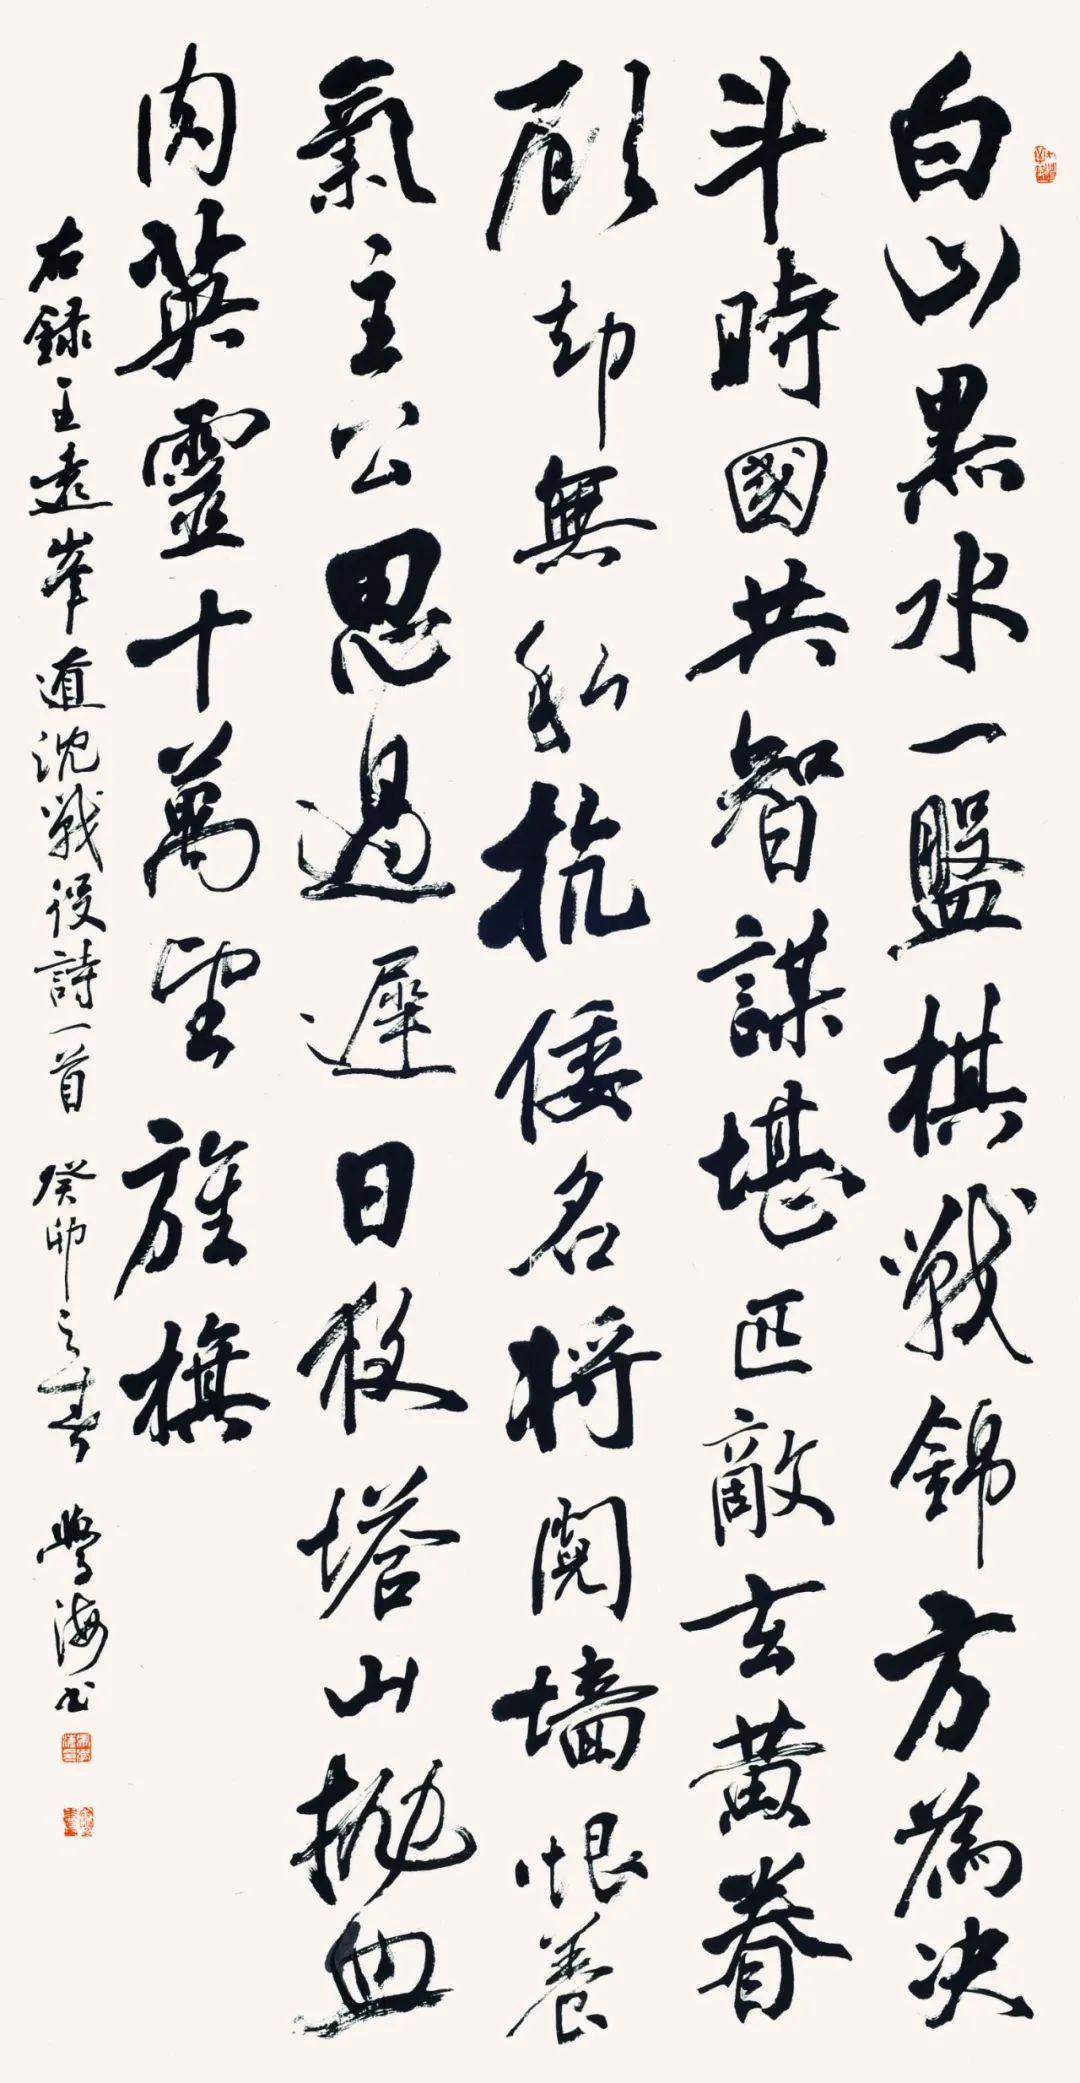 白山黑水一盤棋戰錦方為决
斗時國共智謀堪匹敵玄黃眷
顧却無私抗倭名將鬩墙恨養
氣主公思過遲日夜塔山拋血
肉英靈十萬望旌旗
右録王遠峯遼沈戰役詩一首 癸卯之春 海书